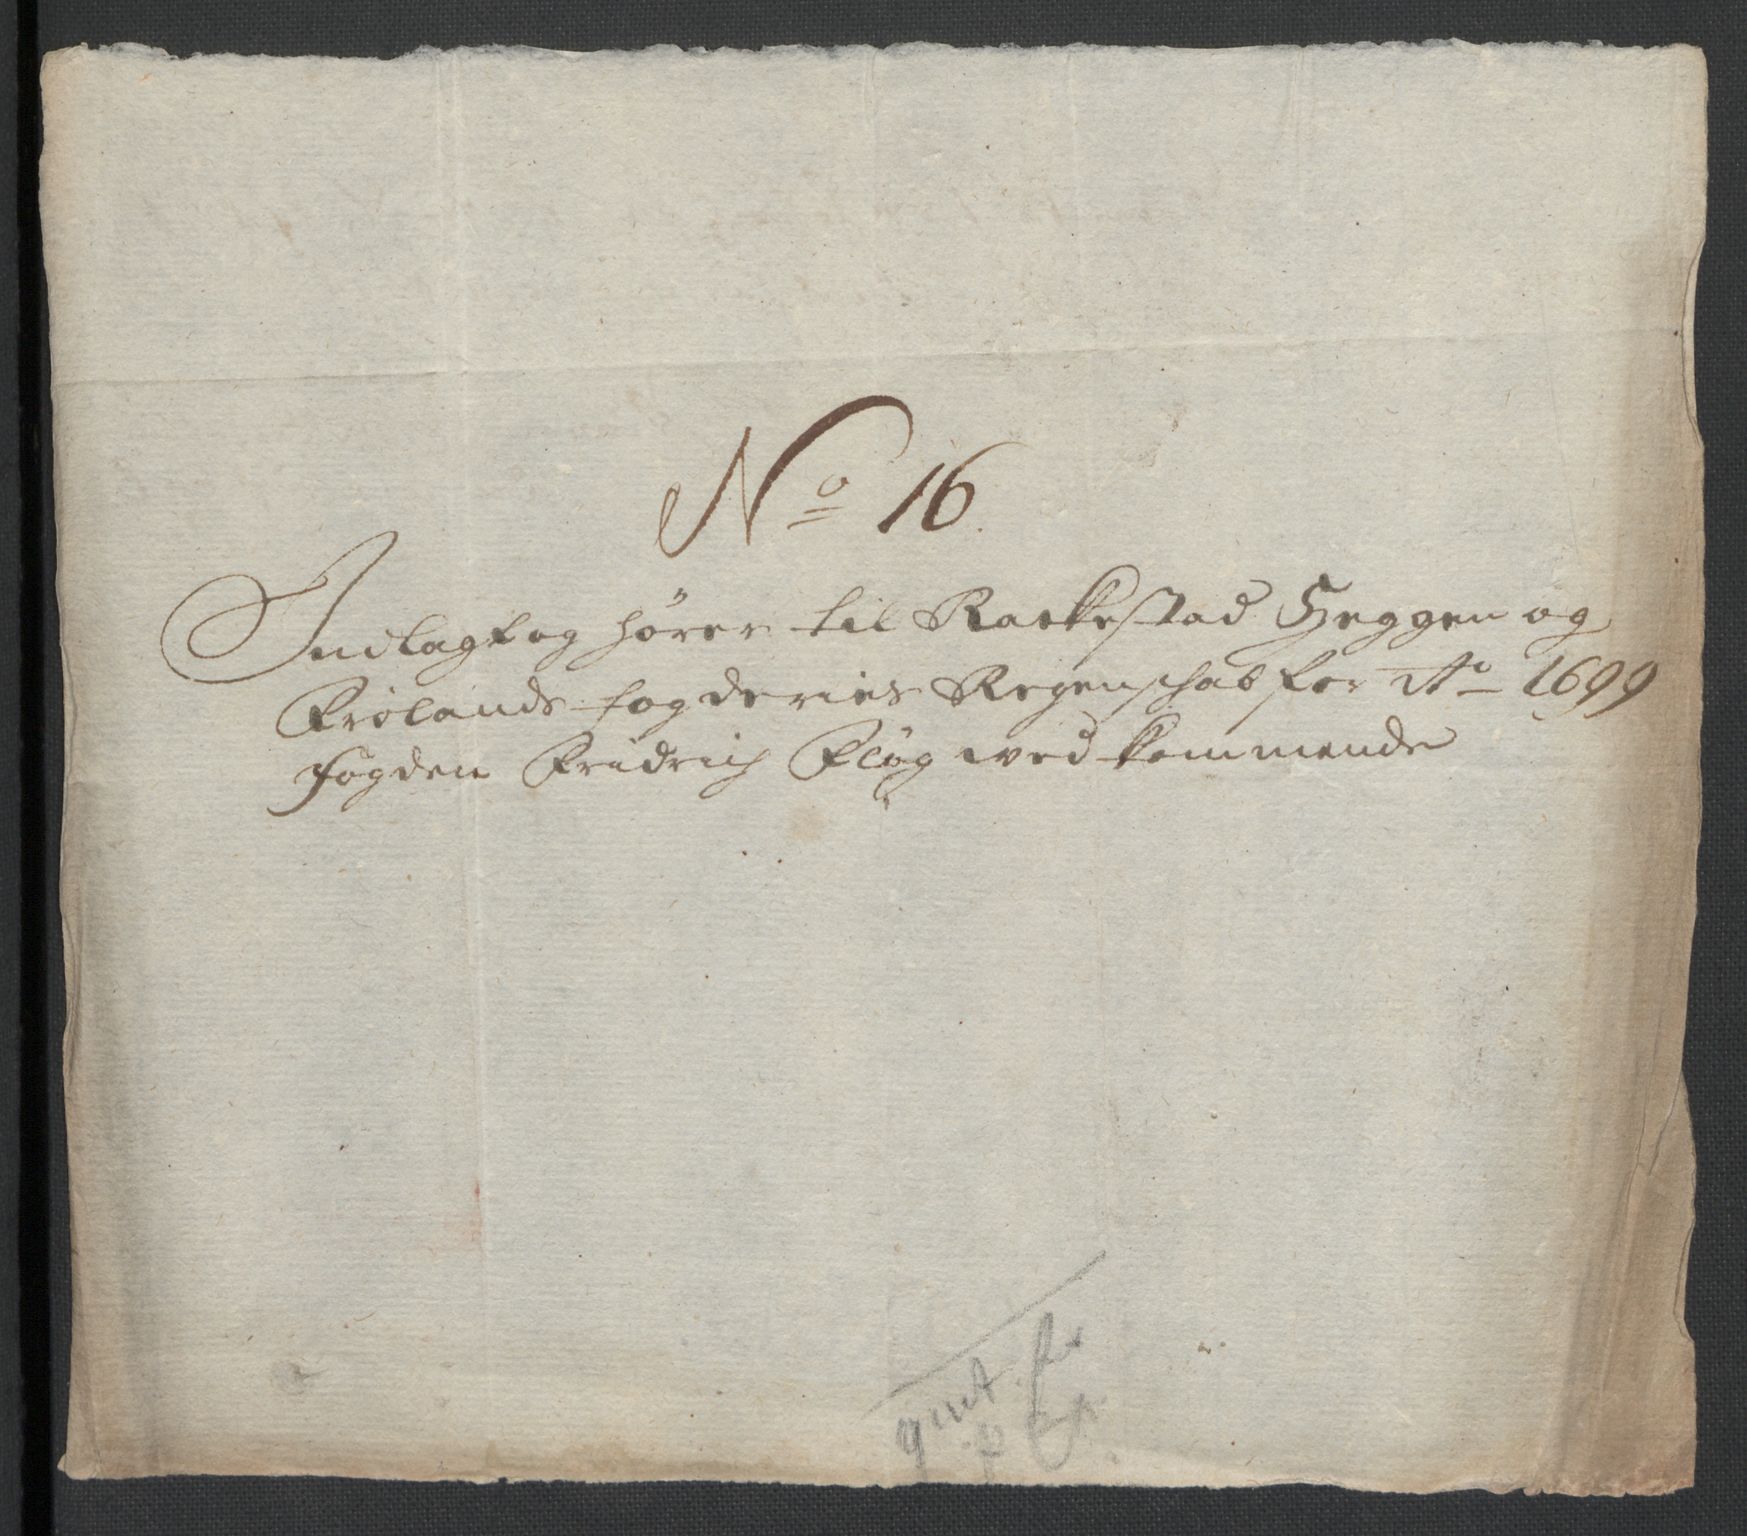 No 16.
Indlagt og hører til Rackestad Heggen og
Frølands fogderies Regenschab for Ao 1699
fogden Fridrich Fløg wedkommende